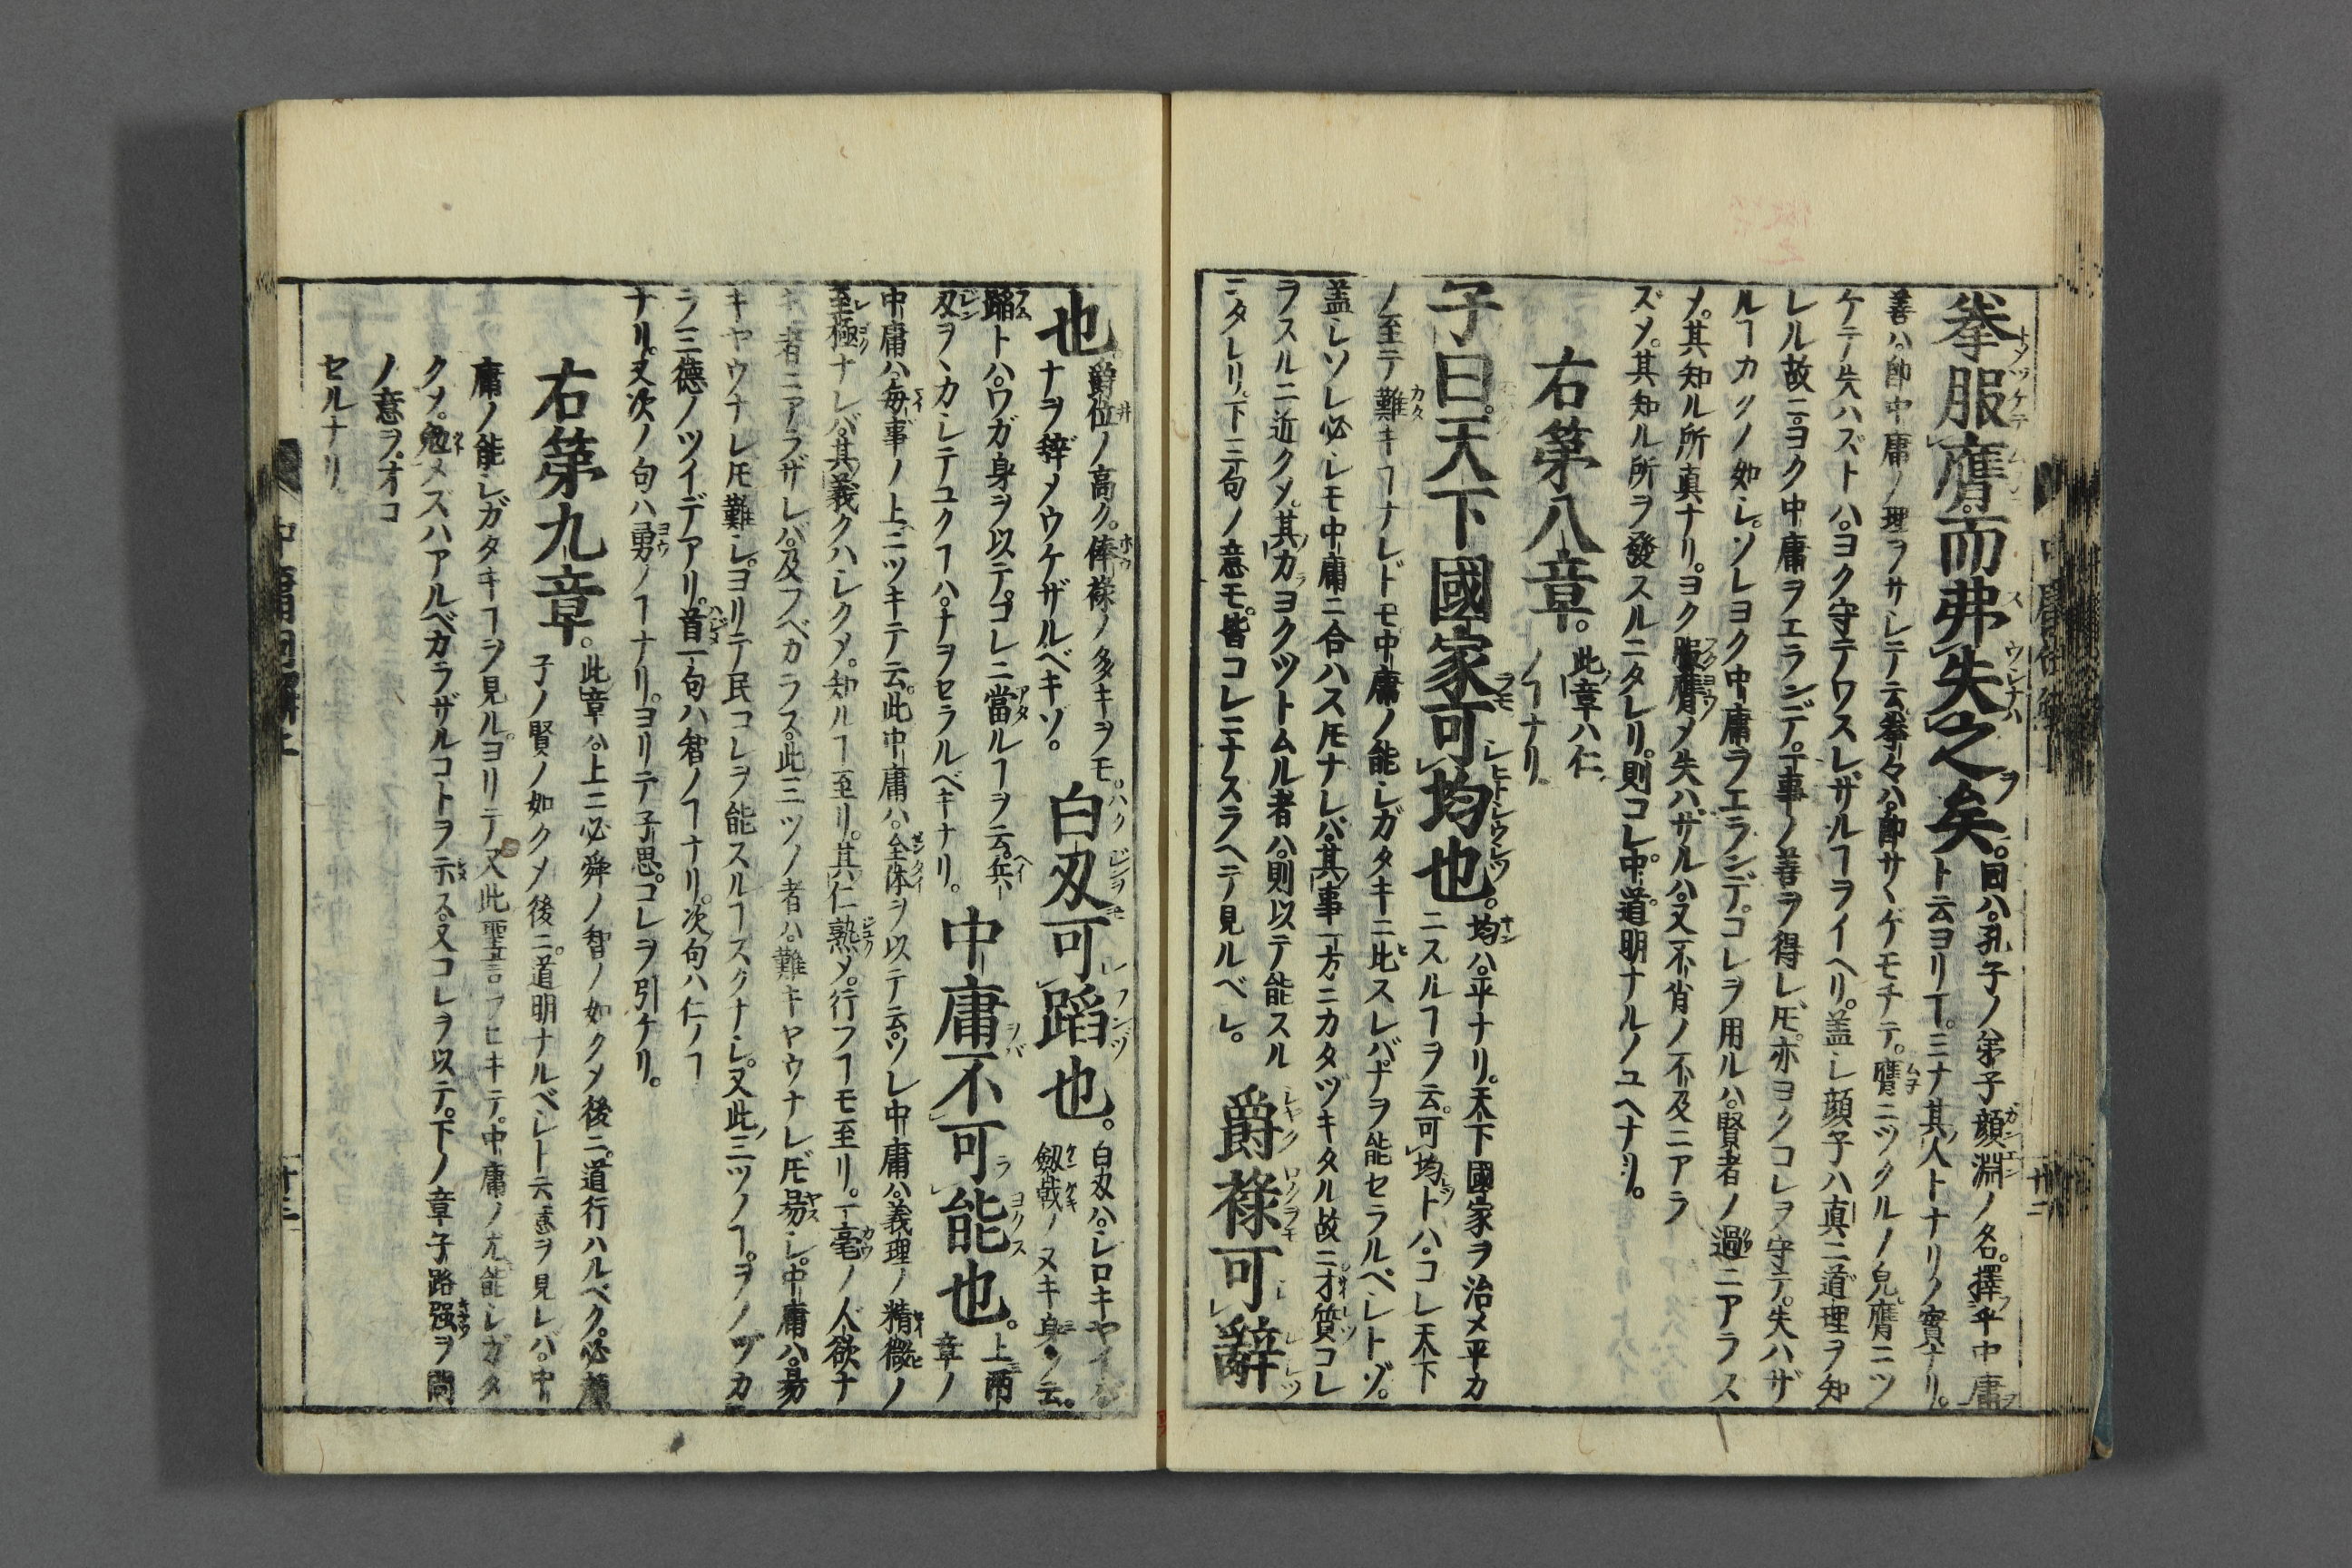 拳服膺而弗失之矣。回ハ。孔子ノ弟子顔淵ノ名。擇乎中庸
ト云ヨリ下。ミナ其人トナリノ實ナリ。
善ハ。即中庸ノ理ヲサシテ云。拳々ハ。即サヽゲモチテ。膺ニツクルノ皃。膺ニツ
ケテ失ハズトハ。ヨク守テワスレザルヿヲイヘリ。盖シ顔子ハ真ニ道理ヲ知
レル故ニ。ヨク中庸ヲエランデ。一事ノ善ヲ得レ𪜈。亦ヨクコレヲ守テ。失ハザ
ルヿカクノ如シ。ソレヨク中庸ヲエランデ。コレヲ用ルハ。賢者ノ過ニアラス
乄。其知ル所真ナリ。ヨク服膺乄失ハザルハ。又不肖ノ不及ニアラ
ズ乄。其知ル所ヲ發スルニタレリ。則コレ中道。明ナルノユヘナリ。
右第八章。此章ハ仁
ノヿナリ
子曰。天下國家可均也。均ハ。平ナリ。天下國家ヲ治メ平カ
ニスルヿヲ云。可均トハ。コレ天下
ノ至テ難キヿナレドモ中庸ノ能シガタキニ比スレバナヲ能セラルベシトゾ。
盖シソレ必シモ中庸ニ合ハス𪜈ナレバ。其事一方ニカタヅキタル故ニ才質コレ
ヲスルニ近ク乄。其力ヨクツトムル者ハ。則以テ能スル
ニタレリ。下三句ノ意モ。皆コレニナスラヘテ見ルベシ。爵祿可辭
也爵位ノ高ク。俸禄ノ多キヲモ。
ナヲ辭乄ウケザルベキゾ。白刃可蹈也。白刃ハ。シロキヤイバ。
劔戟ノヌキ身ヲ云。
蹈トハ。ワガ身ヲ以テ。コレニ當ルヿヲ云。兵
刃ヲヽカシテユクヿハ。ナヲセラルベキナリ。中庸不可能也。上兩
章ノ
中庸ハ。毎事ノ上ニツキテ云。此中庸ハ。全体ヲ以テ云。ソレ中庸ハ。義理ノ精微ノ
至極ナレバ。其義クハシク乄。知ルヿ至リ。其仁熟乄。行フヿモ至リ。一毫ノ人欲ナ
キ者ニアラザレバ。及フベカラス。此三ツノ者ハ。難キヤウナレ𪜈易シ。中庸ハ。易
キヤウナレ𪜈難シ。ヨリテ民コレヲ能スルヿスクナシ。又此三ツノヿ。ヲノヅカ
ラ三德ノツイデアリ。首一句ハ智ノヿナリ。次句ハ仁ノヿ
ナリ。又次ノ句ハ勇ノヿナリ。ヨリテ子思。コレヲ引ケリ。
右第九章。此章ハ。上ニ必舜ノ智ノ如ク乄後ニ。道行ハルベク。必顔
子ノ賢ノ如ク乄後ニ。道明ナルベシト云意ヲ見レバ。中
庸ノ能シガタキヿヲ見ル。ヨリテ又此聖言ヲヒキテ。中庸ノ尤能シガタ
ク乄。勉メズハアルベカラザルコトヲ示ス。又コレヲ以テ。下ノ章子路强ヲ問
ノ意ヲ。オコ
セルナリ
中庸
十二